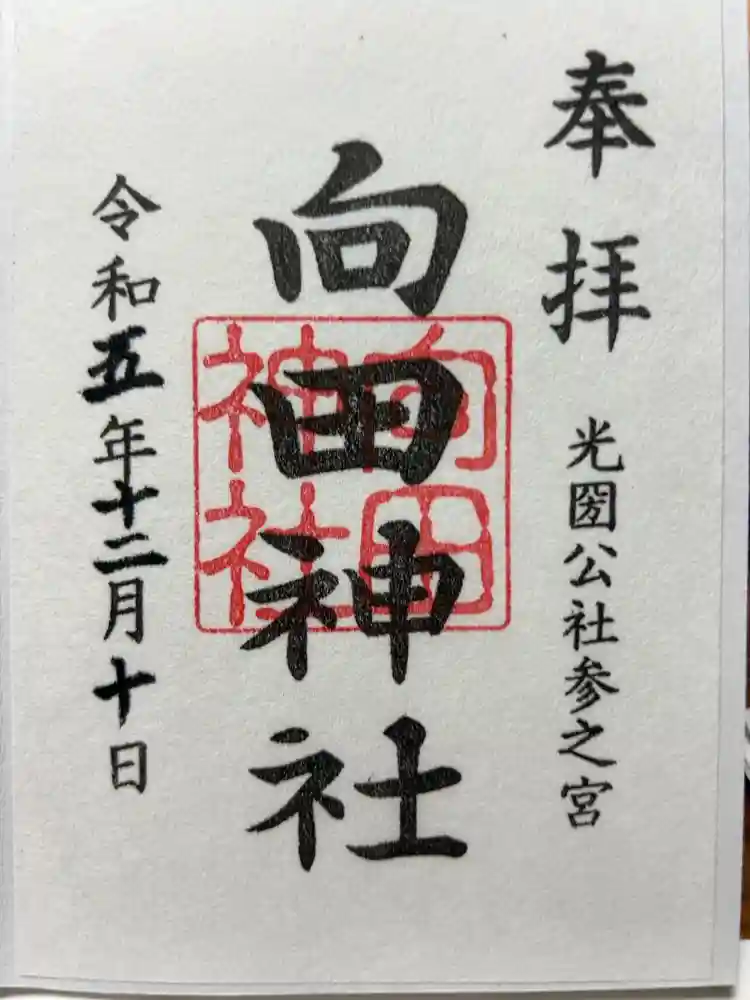 奉拝
光圀公社参之宮
向田神社
向田
神社
令和五年十二月十日